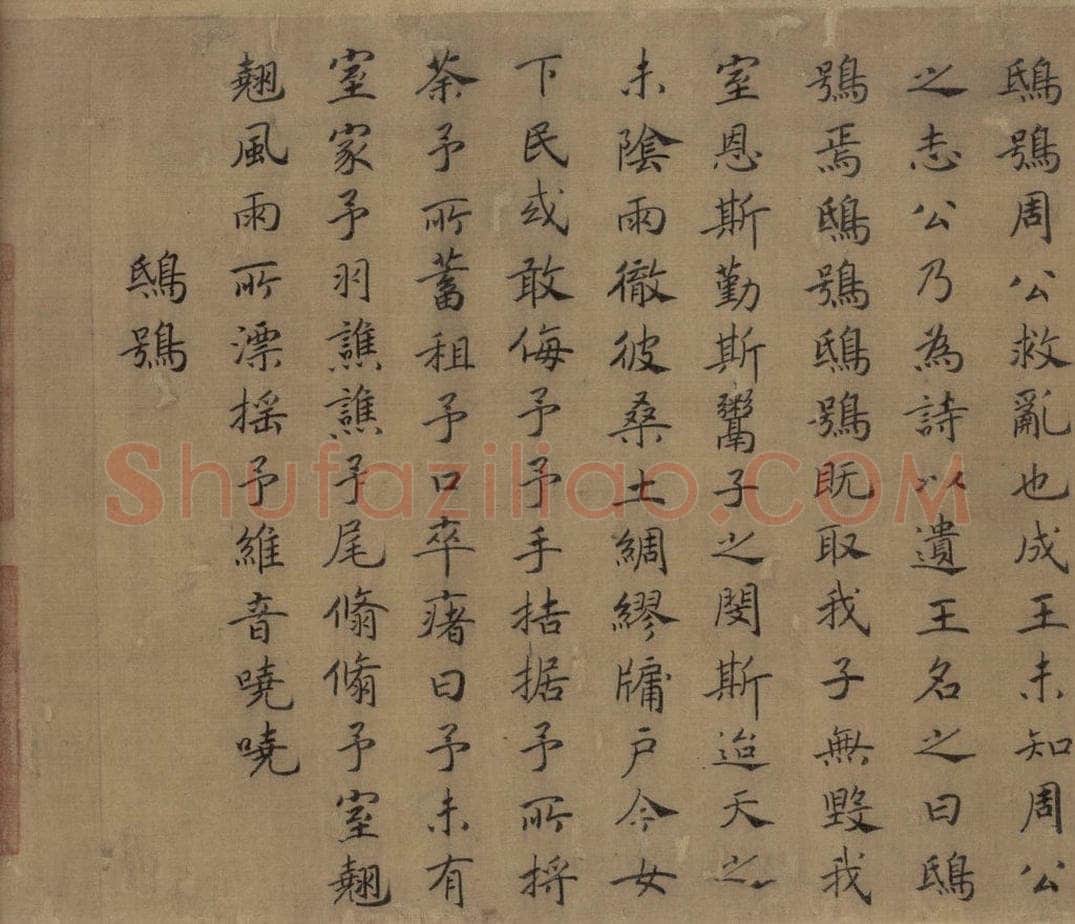 鴟鴞周公救亂也成王未知周公
之志公乃為詩以遺王名之曰鴟
鴞焉鴟鴞鴟鴞既取我子無毀我
室恩斯勤斯鬻子之閔斯迨天之
未陰雨徹彼桑土綢繆牖戶今女
下民或敢侮予予手拮据予所捋
荼予所蓄租予口卒瘏曰予未有
室家予羽譙譙予尾翛翛予室翹
翹風雨所漂搖予維音嘵嘵
鴟鴞
Shufaziliao.COM